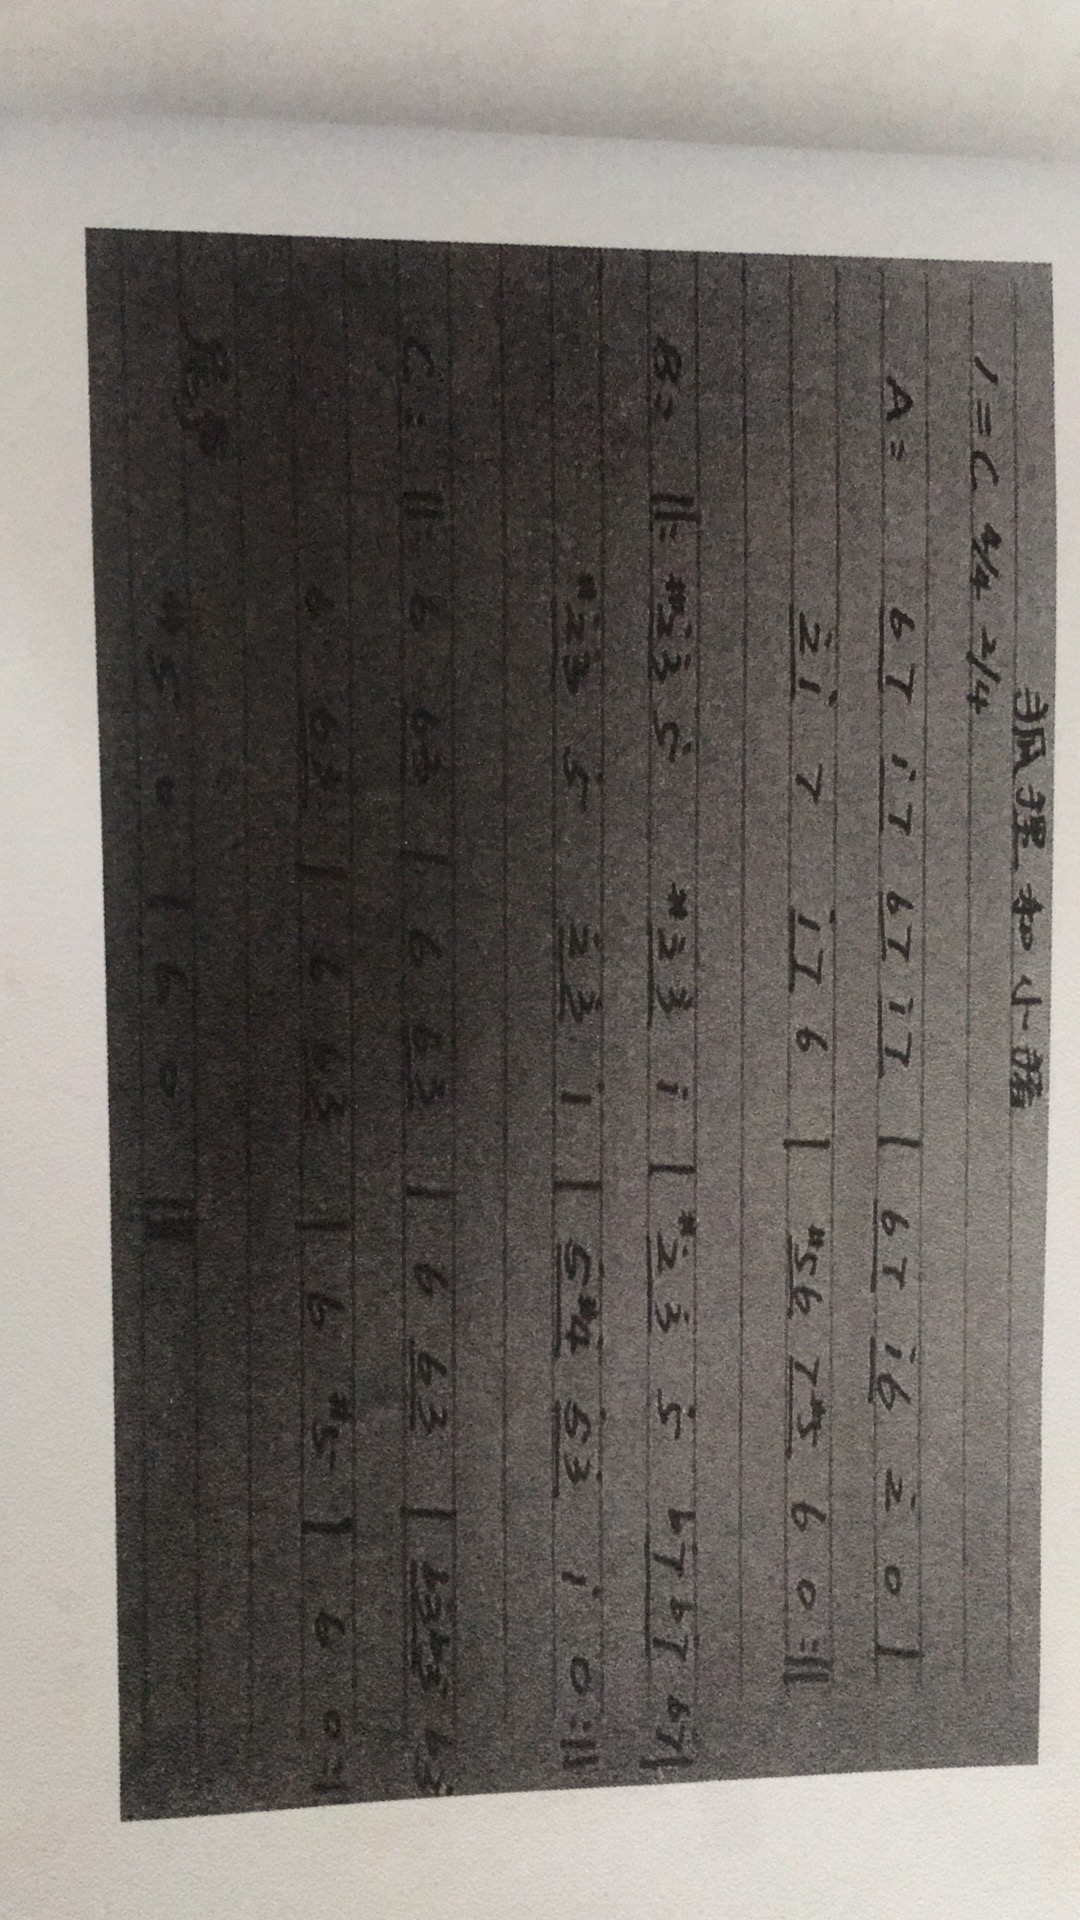 狐狸和小猪
1=C 4/4 2/4
A: 67 i7 67 i7 | 67 i6 2̇ 0 |
2̇i 7 i7 6 | #56 7#5 6 0 :||
B: ||: #2̇3̇ 5̇ #2̇3̇ i | #2̇3̇ 5̇ 67 67 67 |
#2̇3̇ 5̇ 2̇3̇ i | 5̇#4̇ 5̇3̇ i 0 :||
C: ||: 6 63 | 6 63 | 6 63 |
6 63 | 6 63 | 6 #5 | 6 0 :|
#5 0 | 6 0 ||